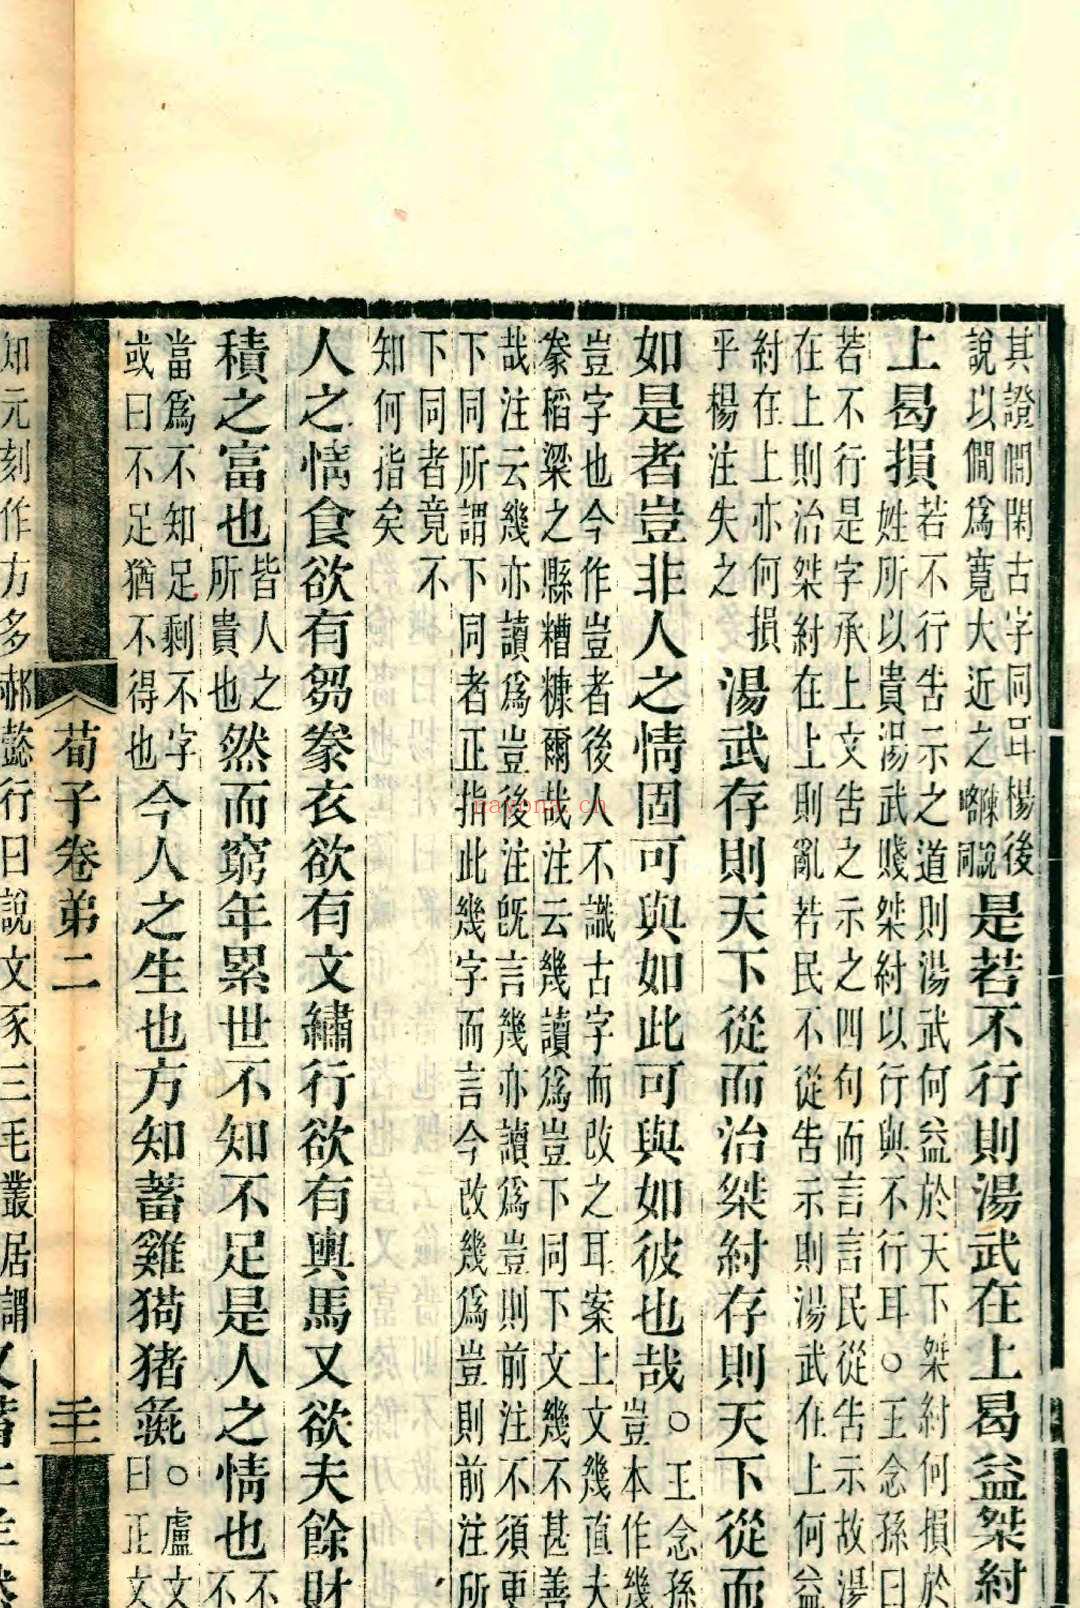 其證㒓閑古字同耳楊後
說以僩爲寬大近之陳說
略同
是若不行則湯武在上曷益桀紂
上曷損
若不行告示之道則湯武何益於天下桀紂何損於
姓所以貴湯武賤桀紂以行與不行耳○王念孫曰
若不行是字承上文告之示之四句而言言民從告示故湯
在上則治桀紂在上則亂若民不從告示則湯武在上何益
紂在上亦何損
乎楊注失之
湯武存則天下從而治桀紂存則天下從而
如是者豈非人之情固可與如此可與如彼也哉
○王念孫
豈本作幾
豈字也今作豈者後人不識古字而改之耳案上文幾直夫
豢稻粱之縣糟糠爾哉注云幾讀爲豈下同下文幾不甚善
哉注云幾亦讀爲豈後注旣言幾亦讀爲豈則前注不須更
下同所謂下同者正指此幾字而言今改幾爲豈則前注所
下同者竟不
知何指矣
人之情食欲有芻豢衣欲有文繡行欲有輿馬又欲夫餘財
積之富也
皆人之
所貴也
然而窮年累世不知不足是人之情也
不
不
當爲不知足剩不字
或曰不足猶不得也
今人之生也方知蓄雞狗猪彘
○盧文
曰正文
荀子卷第二
二十
知元刻作方多郝懿行曰說文豕三毛叢居謂
又蓄